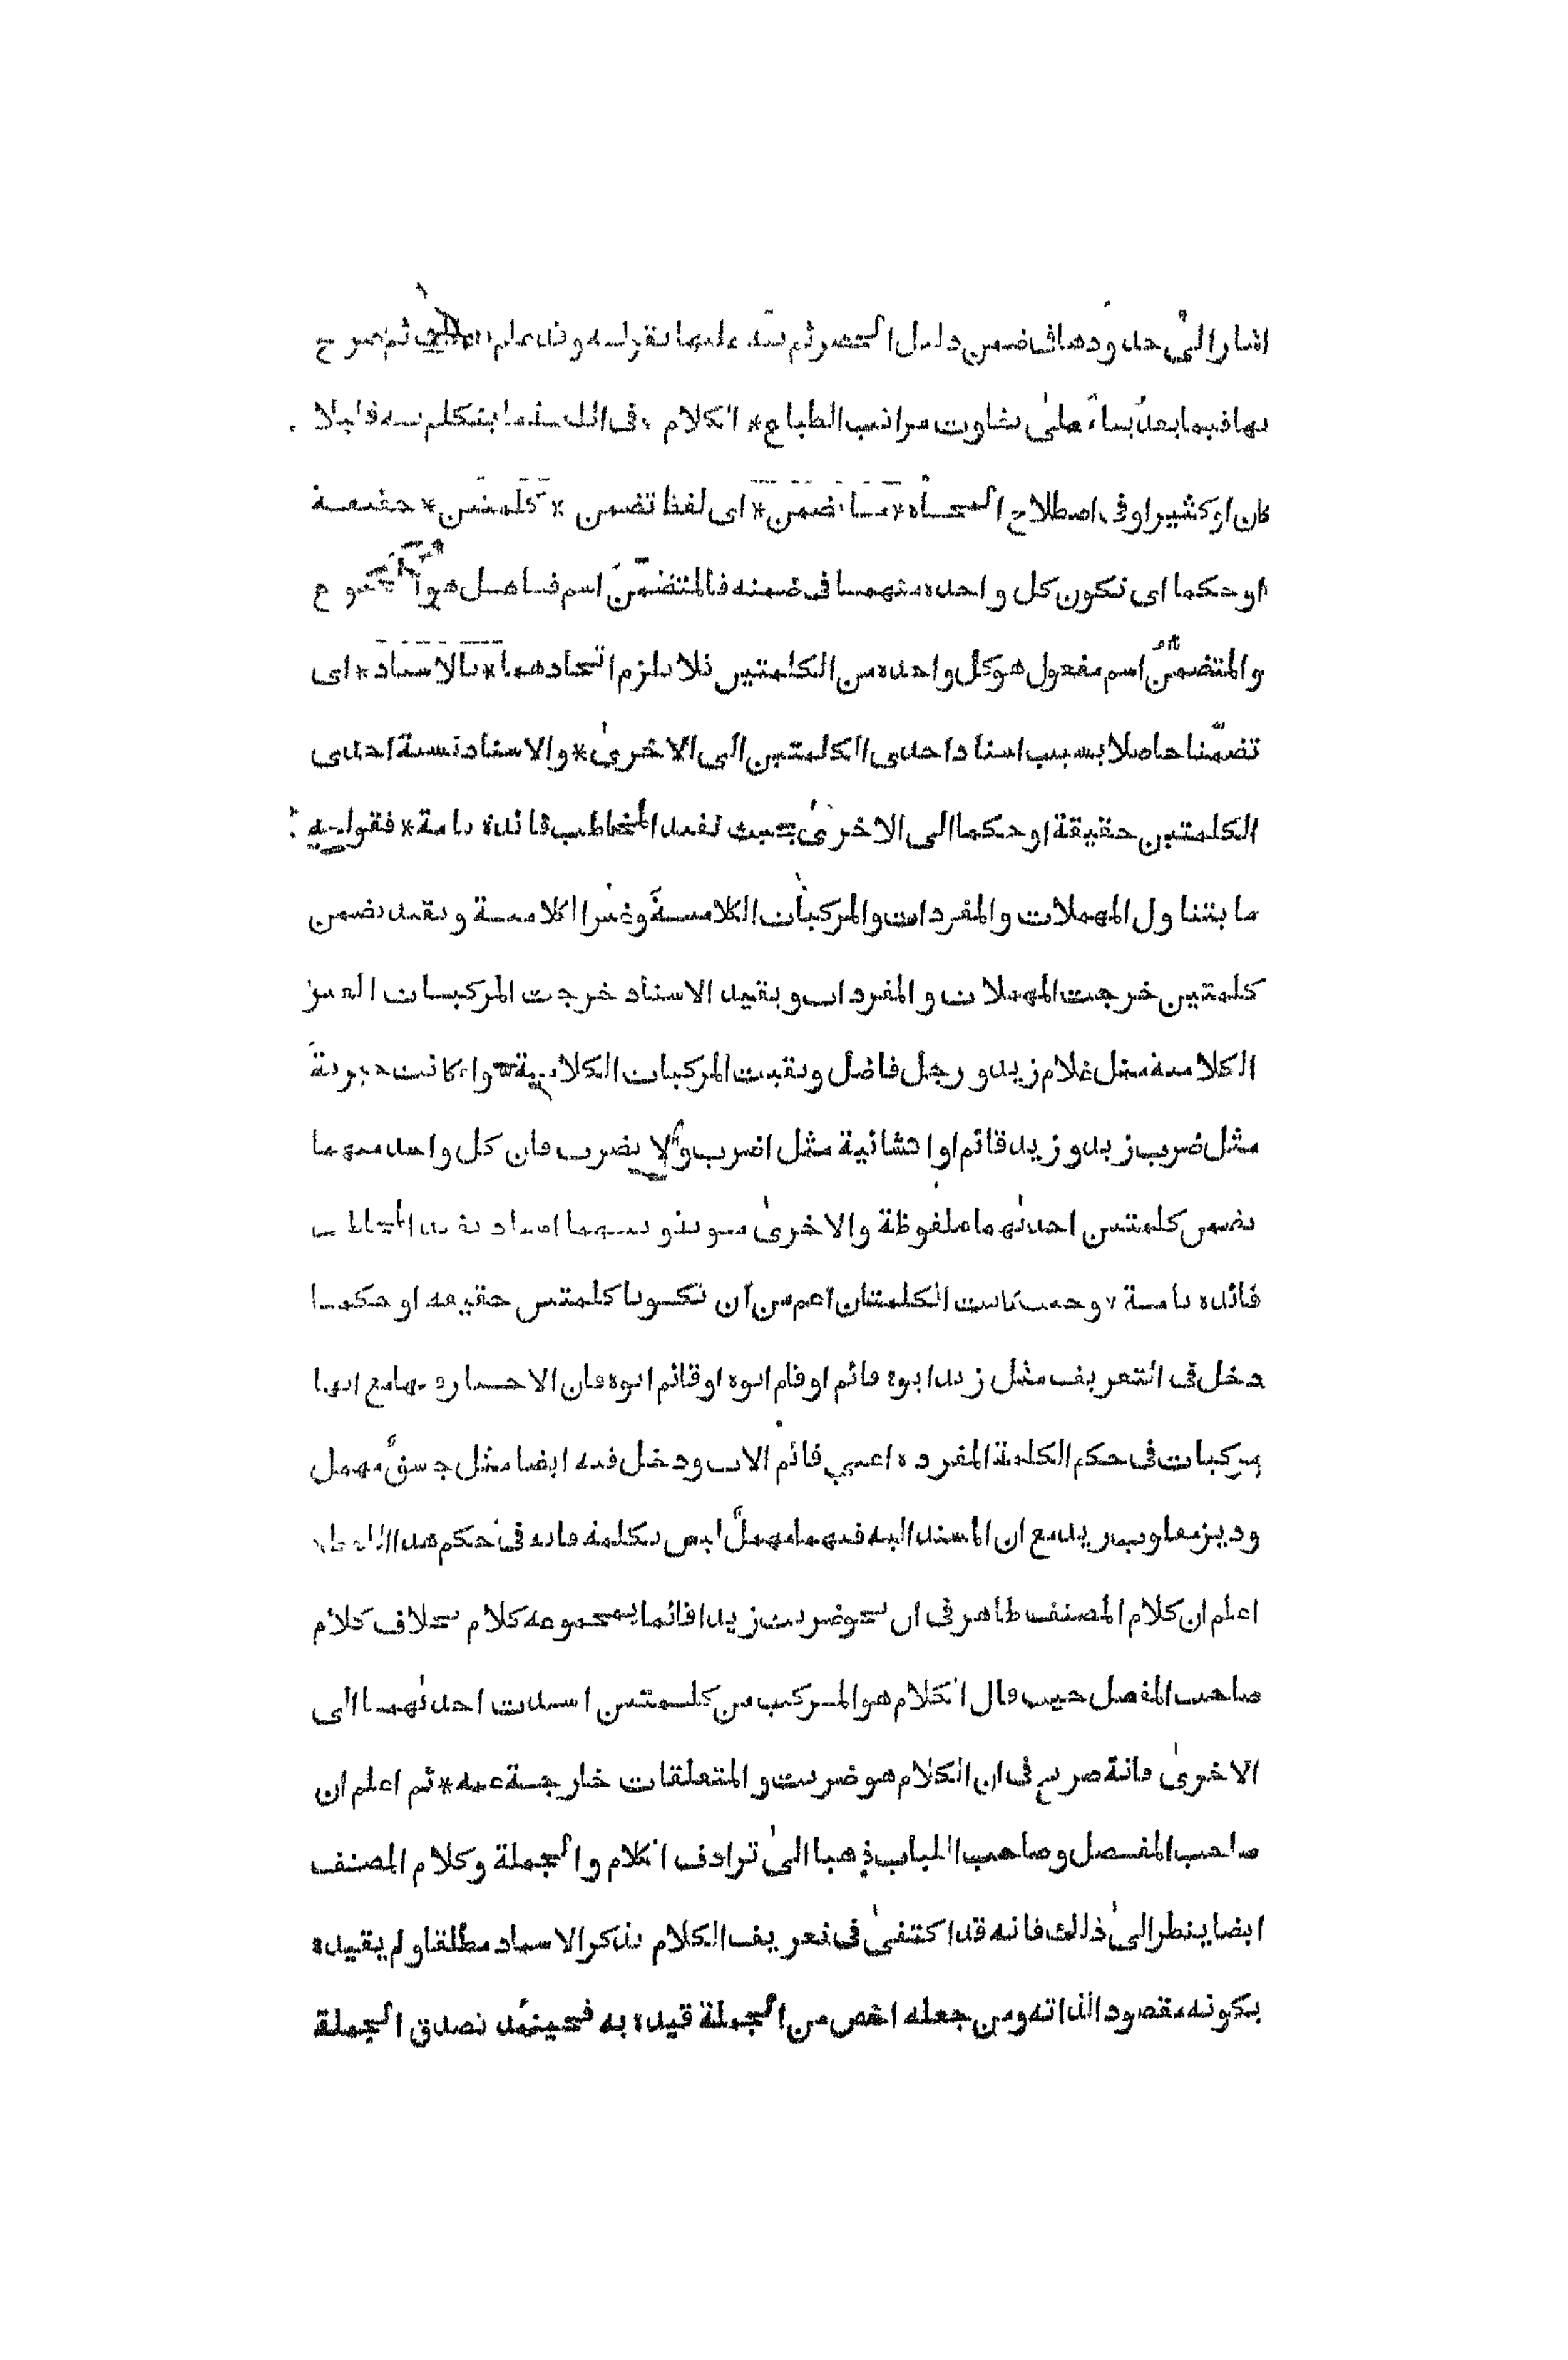 اشار الى حدودها فى ضمن دليل الحصر ثم نبه عليها بقوله وقد علم ثم صرح
بها فيما بعد بناء على تفاوت مراتب الطباع * الكلام * فى اللغة ما يتكلم به قليلا
كان او كثيرا وفى اصطلاح النحاة * ما تضمن * اى لفظ تضمن * كلمتين * حقيقة
او حكما اى تكون كل واحدة منهما فى ضمنه فالمتضمن اسم فاعل هو المجموع
والمتضمن اسم مفعول هو كل واحدة من الكلمتين فلا يلزم اتحادهما * بالاسناد * اى
تضمنا حاصلا بسبب اسناد احدى الكلمتين الى الاخرى * والاسناد نسبة احدى
الكلمتين حقيقة او حكما الى الاخرى بحيث تفيد المخاطب فائدة تامة * فقوله
ما يتناول المهملات والمفردات والمركبات الكلامية وغير الكلامية وبقيد تضمن
كلمتين خرجت المهملات والمفردات وبقيد الاسناد خرجت المركبات الغير
الكلامية مثل غلام زيد ورجل فاضل وبقيت المركبات الكلامية سواء كانت خبرية
مثل ضرب زيد وزيد قائم او انشائية مثل اضرب ولا تضرب فان كل واحد منهما
تضمن كلمتين احدىهما ملفوظة والاخرى منوية وبينهما اسناد يفيد المخاطب
فائدة تامة * وحيث كانت الكلمتان اعم من ان تكونا كلمتين حقيقة او حكما
دخل فى التعريف مثل زيد ابوه قائم او قام ابوه او قائم ابوه فان الاخبار فيها مع انها
مركبات فى حكم الكلمة المفردة اعنى قائم الاب ودخل فيه ايضا مثل جسق مهمل
وديز مقلوب زيد مع ان المسند اليه فيهما مهمل ليس بكلمة فانه فى حكم هذا اللفظ
اعلم ان كلام المصنف ظاهر فى ان نحو ضربت زيدا قائما بمجموعه كلام بخلاف كلام
صاحب المفصل حيث قال الكلام هو المركب من كلمتين اسندت احدىهما الى
الاخرى فانه صريح فى ان الكلام هو ضربت والمتعلقات خارجة عنه * ثم اعلم ان
صاحب المفصل وصاحب اللباب ذهبا الى ترادف الكلام والجملة وكلام المصنف
ايضا ينظر الى ذلك فانه قد اكتفى فى تعريف الكلام بذكر الاسناد مطلقا ولم يقيده
بكونه مقصودا لذاته ومن جعله اخص من الجملة قيده به فحينئذ تصدق الجملة